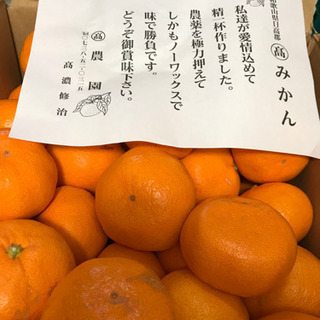 歌山県日高郡
高 みかん
私達が愛情込めて
精一杯作りました。
農薬を極力押えて
しかもノーワックスで
味で勝負です。
どうぞ御賞味下さい。
高 農園
高濃修治